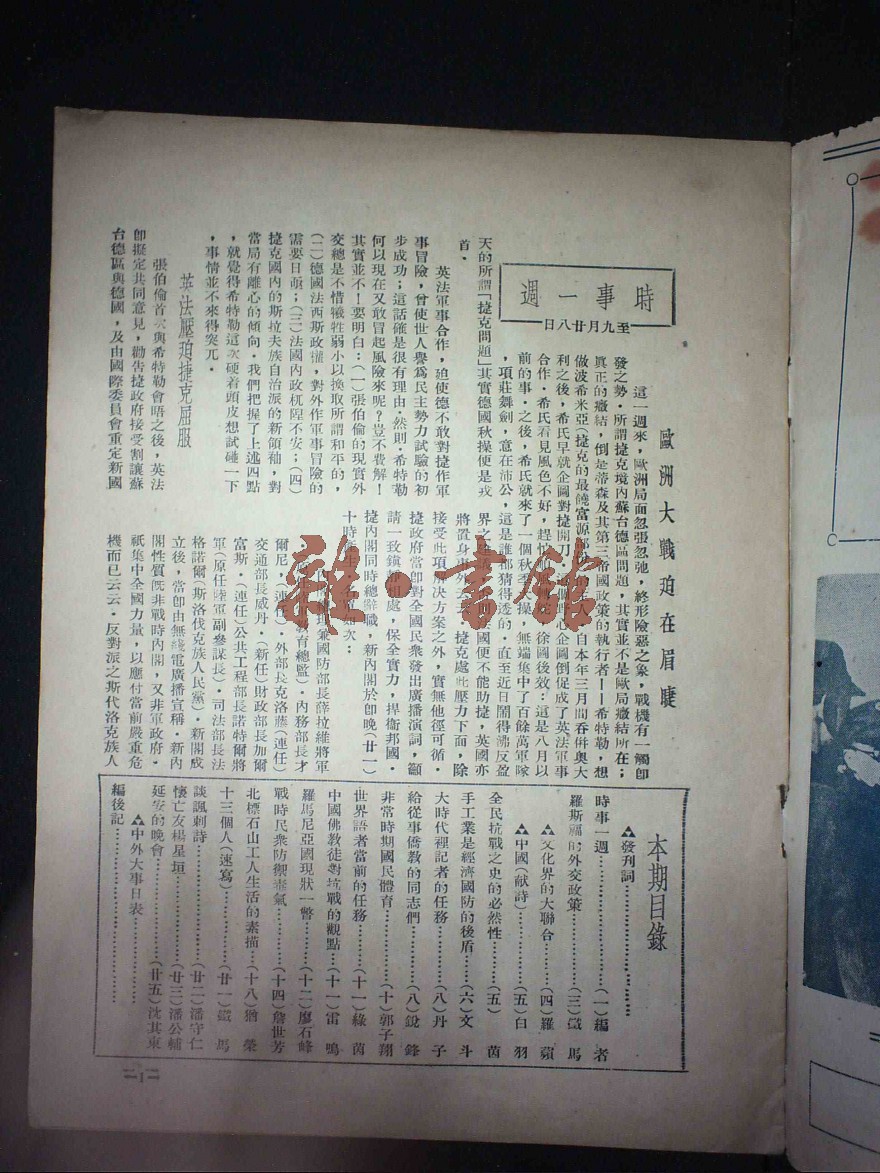 時事一週
至九月廿八日
歐洲大戰迫在眉睫
這一週來，歐洲局面忽張忽弛，終形險惡之象，戰機有一觸卽
發之勢．所謂捷克境內蘇台德區問題，其實並不是歐局癥結所在；
眞正的癥結，倒是蒂森及其第三帝國政策的執行者——希特勒，想
做波希米亞（捷克的最饒富源
人．自本年三月間吞併奧大
利之後，希氏早就企圖對捷開刀
企圖倒促成了英法軍事
合作．希氏看見風色不好，趕
徐圖後效：這是八月以
前的事．之後，希氏就來了一個秋季
操，無端集中了百餘萬軍隊
，項莊舞劍，意在沛公，這是誰都猜得透的．直至近日鬧得沸反盈
天的所謂「捷克問題」其實德國秋操便是戎
首．
英法軍事合作，廹使德不敢對捷作軍
事冒險，曾使世人譽爲民主勢力試驗的初
步成功；這話確是很有理由．然則．希特勒
何以現在又敢冒起風險來呢？豈不費解！
其實並不！要明白：（一）張伯倫的現實外
交總是不惜犧牲弱小以換取所謂和平的，
（二）德國法西斯政權，對外作軍事冒險的
需要日亟；（三）法國內政杌隉不安；（四）
捷克國內的斯拉夫族自治派的新領袖，對
當局有離心的傾向．我們把握了上述四點
，就覺得希特勒這次硬着頭皮想試碰一下
，事情並不來得突兀．
英法壓廹捷克屈服
張伯倫首次與希特勒會晤之後，英法
卽擬定共同意見，勸吿捷政府接受割讓蘇
台德區與德國，及由國際委員會重定新國
界之
法國便不能助捷，英國亦
將置身
捷克處此壓力下面，除
接受此項解決方案之外，實無他徑可循．
捷政府當卽對全國民衆發出廣播演詞，籲
請一致鎮
處，保全實力，捍衛邦國．
捷內閣同時總辭職，新內閣於卽晚（廿一）
十時
次：
兼國防部長薛拉維將軍
育總監）．內務部長才
爾尼，（連任）．外部長克洛蘇（連任）
交通部長威丹．（新任）財政部長加爾
富斯．（連任）公共工程部長諾特爾將
軍（原任陸軍副參謀長）．司法部長法
格諾爾（斯洛伐克族人民黨）．新閣成
立後，當卽由無綫電廣播宣稱．新內
閣性質旣非戰時內閣，又非軍政府．
祇集中全國力量，以應付當前嚴重危
機而已云云．反對派之斯代洛克族人
本期目錄
▲發刋詞……………
時事一週……………（一）編者
羅斯福的外交政策………（三）鐵馬
▲文化界的大聯合………（四）羅蘋
▲中國（献詩）…………（五）白羽
全民抗戰之史的必然性……（五）茵
手工業是經濟國防的後盾…（六）文斗
大時代裡記者的任務………（八）丹子
給從事僑教的同志們………（八）銳鋒
非常時期國民體育…………（十）郭子翔
世界語者當前的任務………（十一）綠茵
中國佛教徒對抗戰的觀點…（十一）雷鳴
羅馬尼亞國現狀一瞥………（十二）廖石峰
戰時民衆防禦毒氣…………（十四）詹世芳
北標石山工人生活的素描…（十八）猶榮
十三個人（速寫）…………（廿一）鐵馬
談諷刺詩……………………（廿二）潘守仁
懷亡友楊星垣………………（廿三）潘公輔
延安的晚會…………………（廿五）沈其東
▲中外大事日表……………
編後記………………
雜·書館